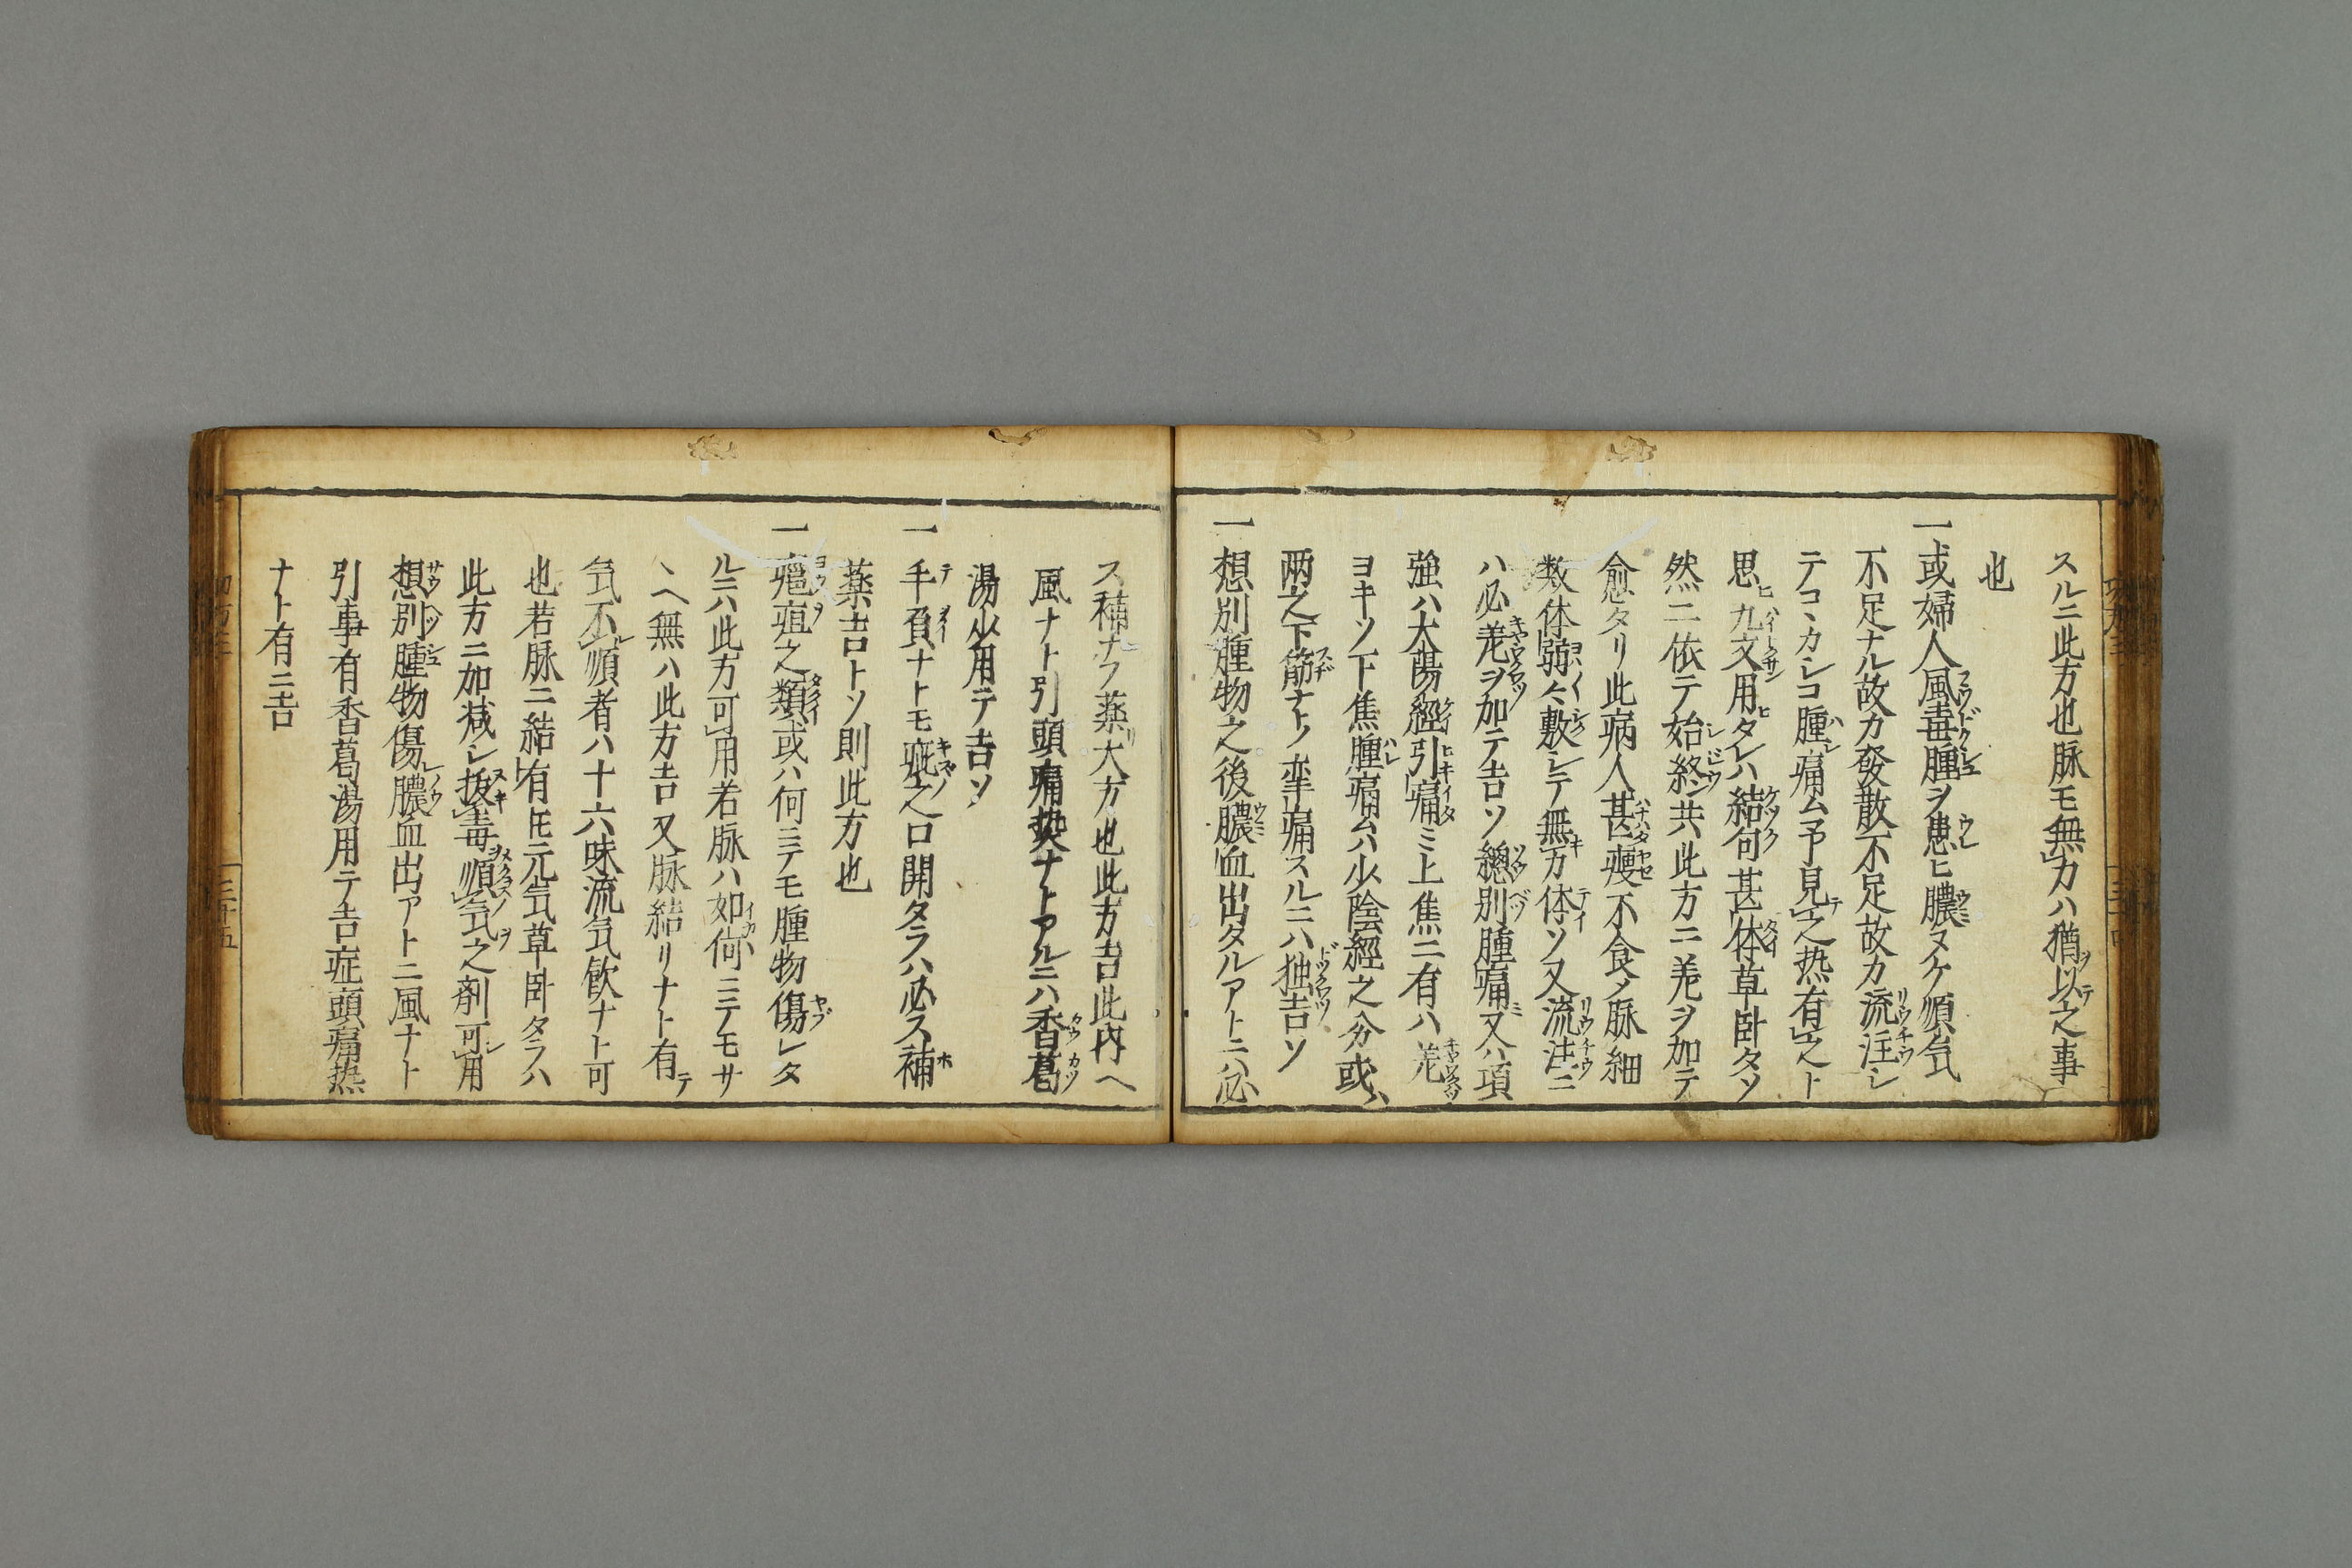 スルニ此方也脉モ無力ハ猶以之事
也
一或婦人風毒腫ヲ患ヒ膿ヌケ順気
不足ナル故カ發散不足故カ流注シ
テコヽカシコ腫痛ム予見之热有之ト
思九文用タレハ結句甚体草卧タソ
然ニ依テ始終共此方ニ羌ヲ加テ
愈タリ此病人甚痩不食メ脉細
数体弱々敷シテ無力体ソ又流注ニ
ハ必羌ヲ加テ吉ソ總別腫痛又ハ項
強ハ大陽經引痛ミ上焦ニ有ハ羌
ヨキソ下焦腫痛ムハ少陰經之分或ハ
两之下筋ナトノ牽痛スルニハ独吉ソ
一想別腫物之後膿血出タルアトニハ必
ス補ナフ薬大方也此方吉此内ヘ
風ナト引頭痛热ナトアルニハ香葛
湯少用テ吉ソ
一手負ナトモ疵之口開タラハ必ス補
薬吉トソ則此方也
一癰疽之類或ハ何ニテモ腫物傷レタ
ルニハ此方可用若脉ハ如何ニテモサ
ヽヘ無ハ此方吉又脉結リナト有
気不順者ハ十六味流気飲ナト可
也若脉ニ結有圧元気草卧タラハ
此方ニ加减シ抜毒順気之剤可用
想別腫物傷膿血出アトニ風ナト
引事有香葛湯用テ吉症頭痛热
ナト有ニ吉